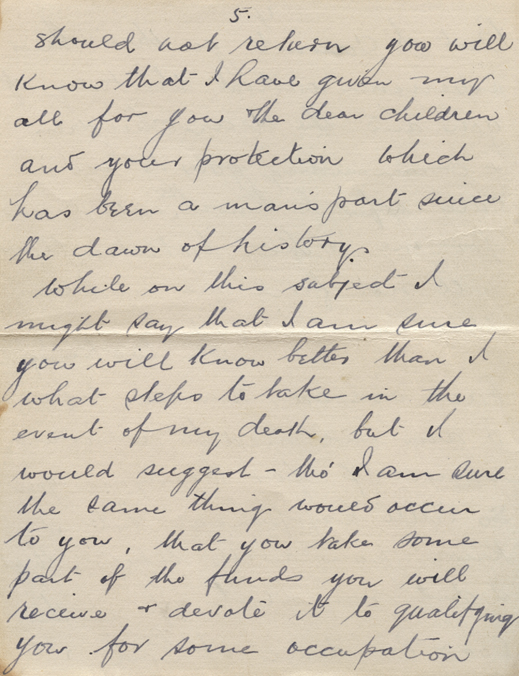 5.
should not return you will
know that I have given my
all for you & the dear children
and your protection which
has been a man's part since
the dawn of history.
While on this subject I
might say that I am sure
you will know better than I
what steps to take in the
event of my death, but I
would suggest - tho' I am sure
the same thing would occur
to you, that you take some
part of the funds you will
receive & devote it to qualifying
you for some occupation